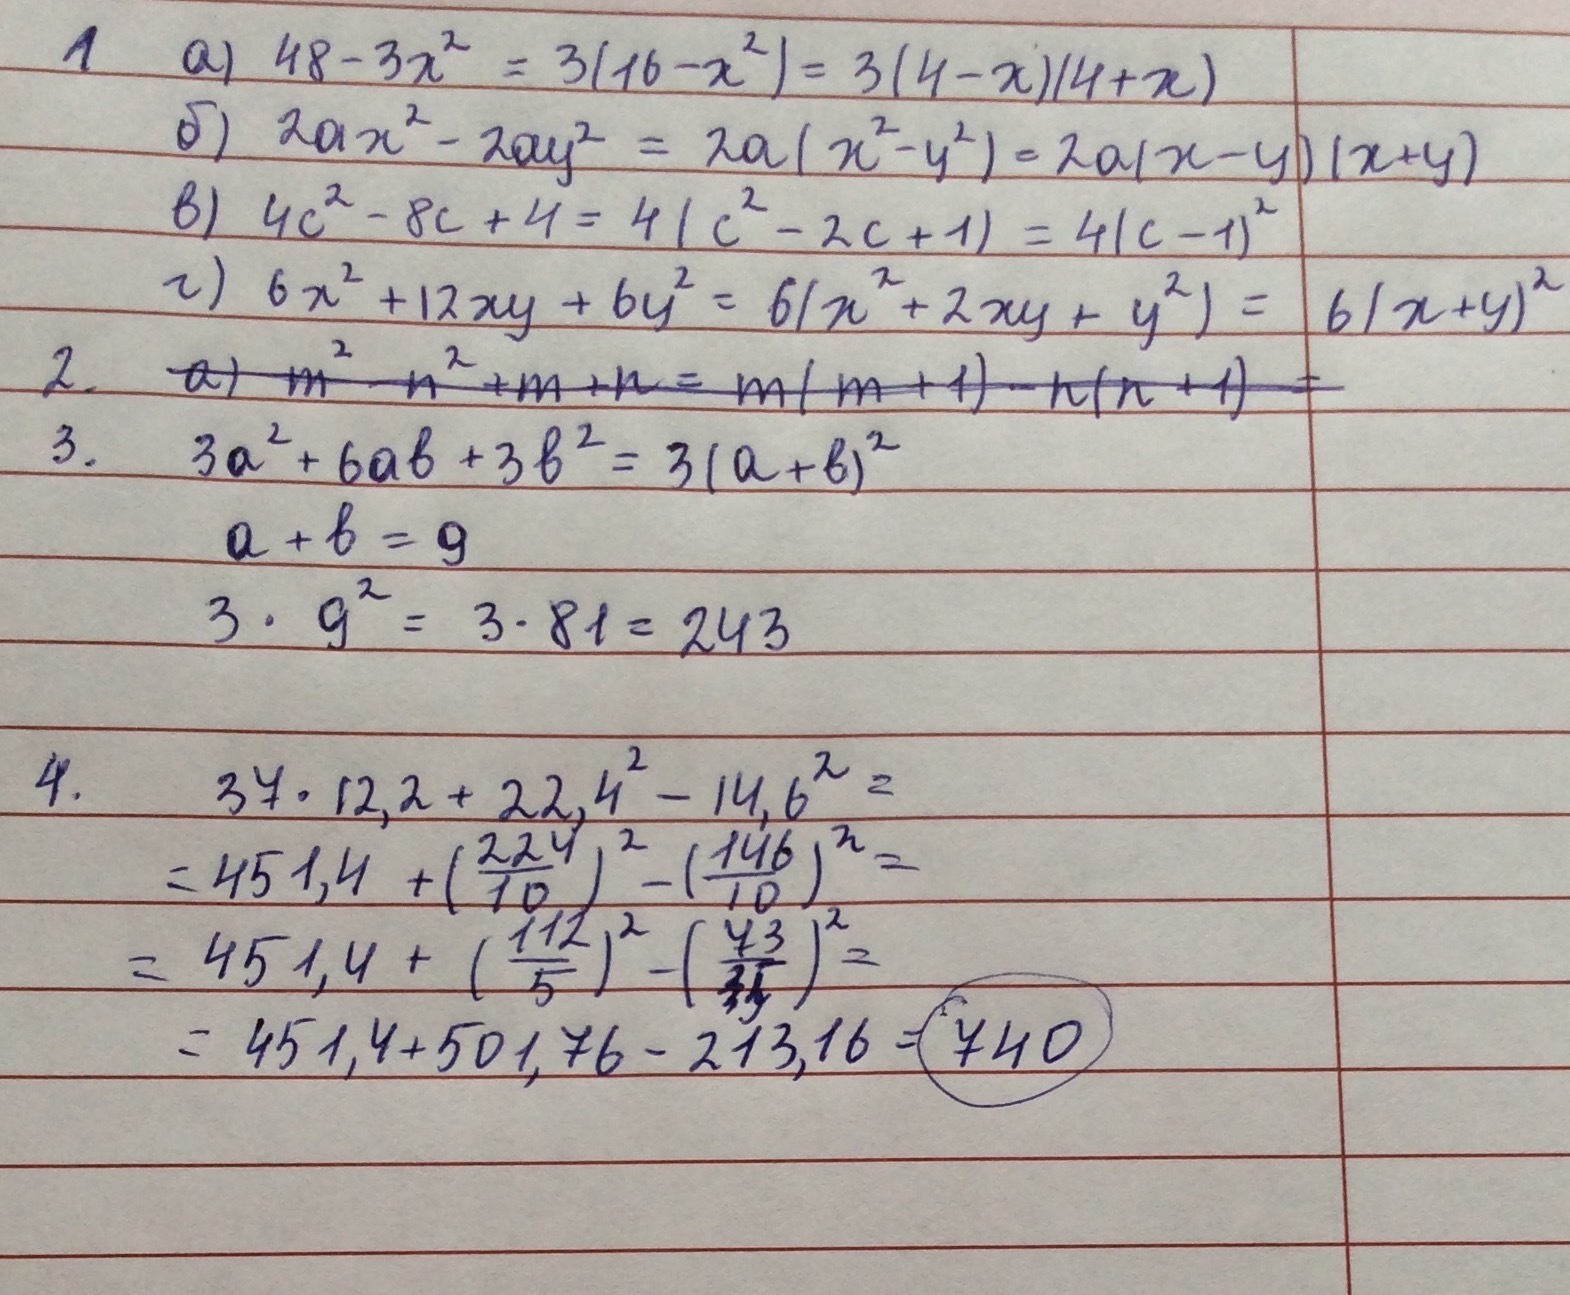 1 а) 48 - 3x² = 3(16 - x²) = 3(4 - x)(4 + x)
б) 2ax² - 2ay² = 2a(x² - y²) = 2a(x - y)(x + y)
в) 4c² - 8c + 4 = 4(c² - 2c + 1) = 4(c - 1)²
г) 6x² + 12xy + 6y² = 6(x² + 2xy + y²) = 6(x + y)²
2. а) m² - n² + m + n = m(m + 1) - n(n + 1) =
3. 3a² + 6ab + 3b² = 3(a + b)²
a + b = 9
3 · 9² = 3 · 81 = 243
4. 37 · 12,2 + 22,4² - 14,6² =
= 451,4 + (224/10)² - (146/10)² =
= 451,4 + (112/5)² - (73/)² =
= 451,4 + 501,76 - 213,16 = 740